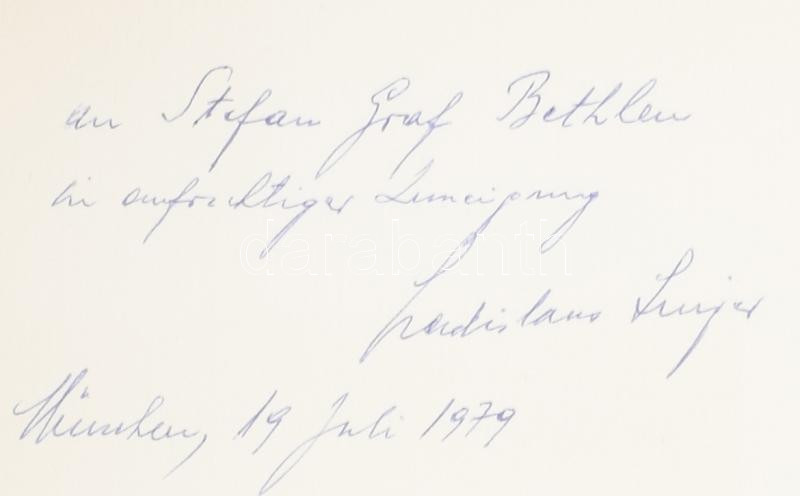 an Stefan Graf Bethlen
in aufrichtiger Zuneigung
darabanth
Ladislaus Singer
München, 19 Juli 1979